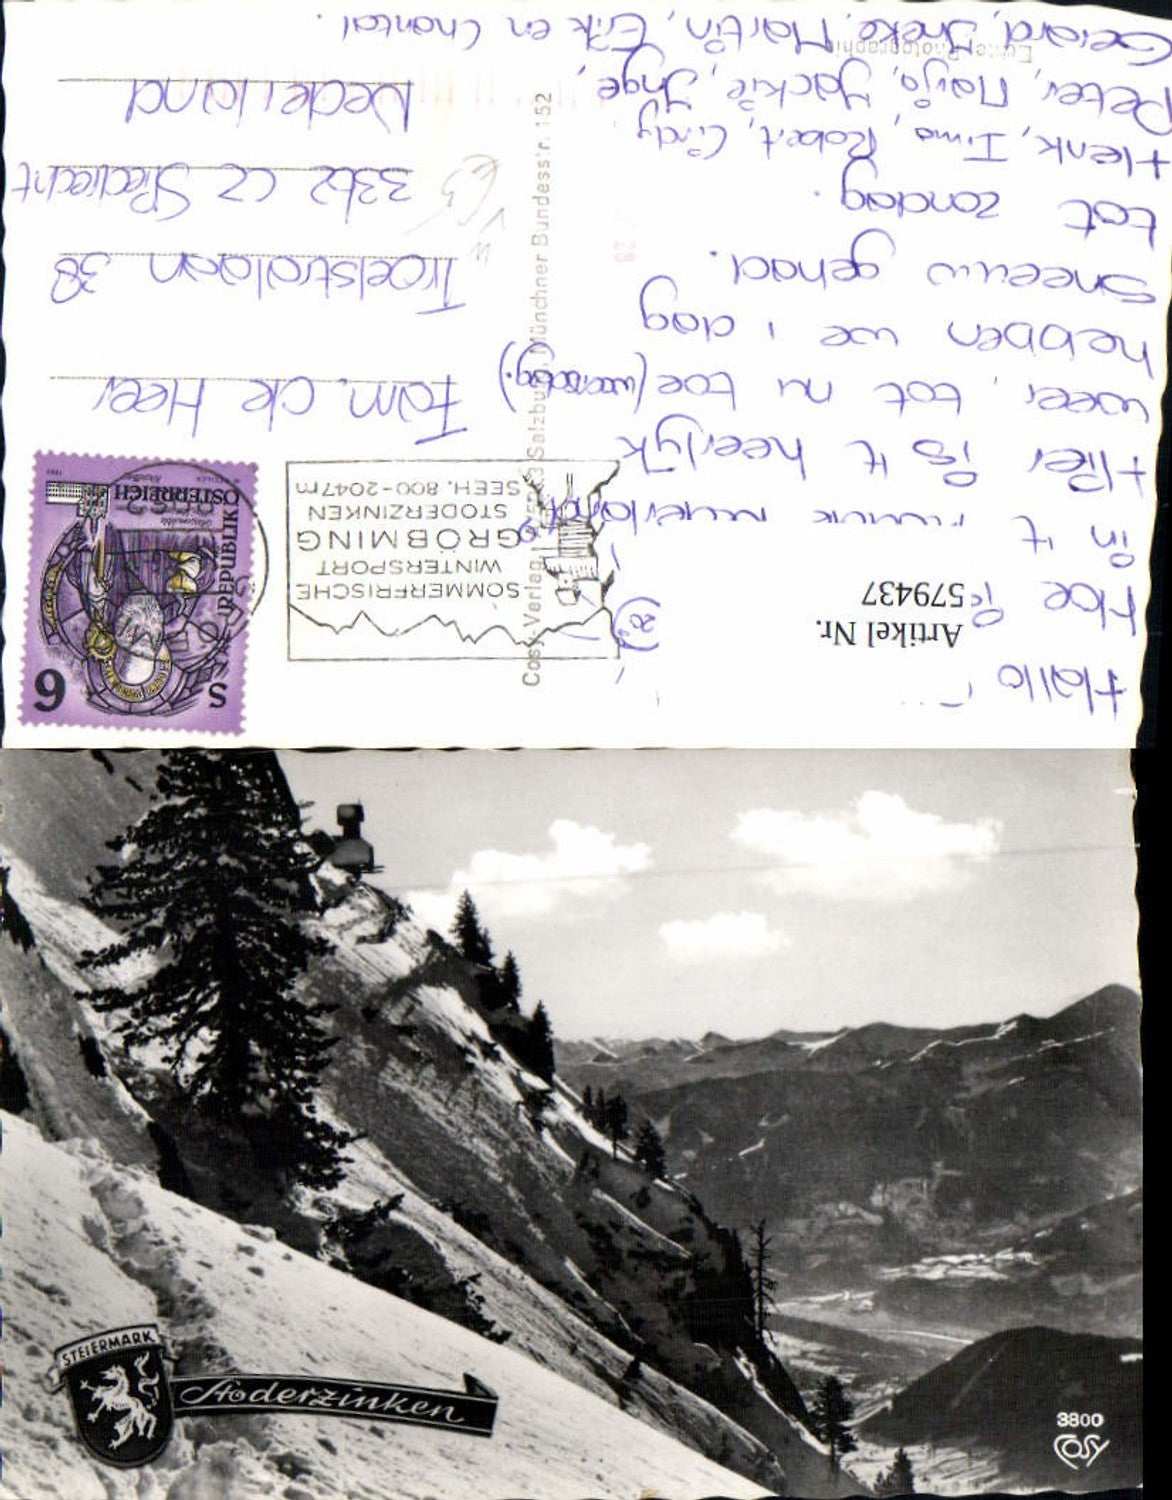 Hallo
Hoe is
in 't nederland?
Hier is 't heerlijk
weer, tot nu toe (woensdag.)
hebben we 1 dag
sneeuw gehad.
tot zondag.
Henk, Timo, Robert, Cindy.
Peter, Marja, Jackie, Inge,
Gerard, Ineke, Martin, Erik en Chantal.
Artikel Nr.
579437
Echte Photographie
Cosy-Verlag
Salzburg, Münchner Bundesstr. 152
SOMMERFRISCHE
WINTERSPORT
GRÖBMING
STODERZINKEN
SEEH. 800-2047m
S 6
REPUBLIK
ÖSTERREICH
Fam. de Heer
Troelstralaan 38
3362 CZ Sliedrecht
Nederland
STEIERMARK
Stoderzinken
3800
COSY